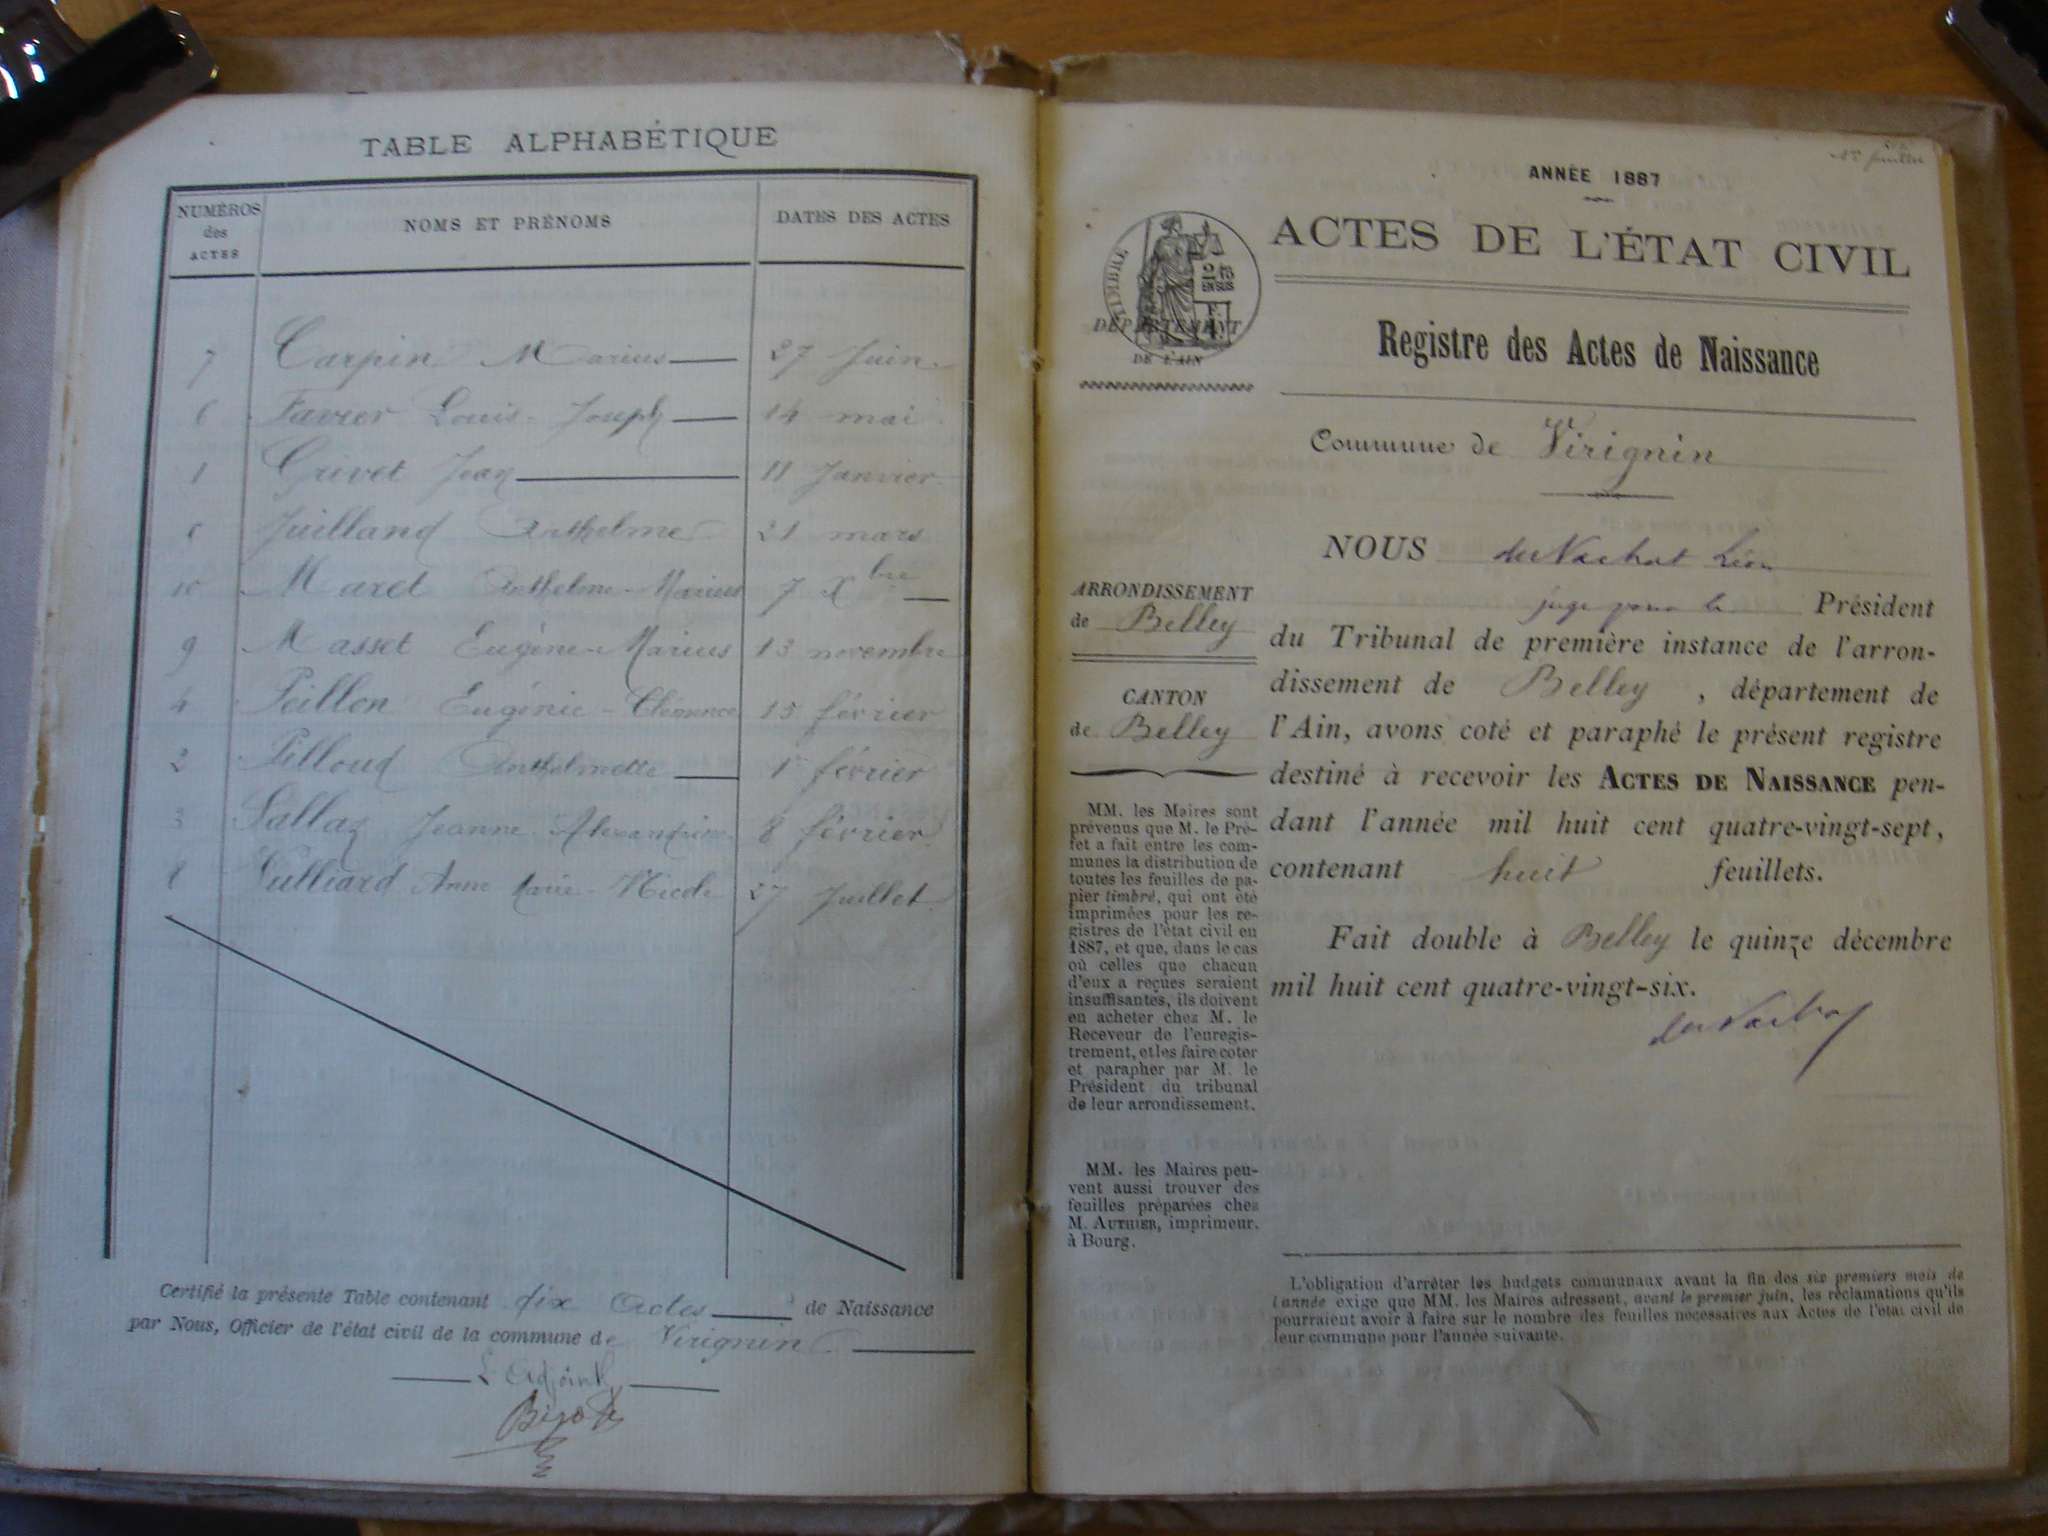 TABLE ALPHABÉTIQUE
NUMÉROS des ACTES
NOMS ET PRÉNOMS
DATES DES ACTES
7 Carpin Marius 27 Juin
6 Favier Louis-Joseph 14 mai
1 Grivet Jean 11 Janvier
Juilland Anthelme 21 mars
10 Maret Anthelme-Marius 7 Xbre
9 Masset Eugène-Marius 13 novembre
4 Peillon Eugénie-Clémence 15 février
2 Pilloud Anthelmette 1er février
3 Sallaz Jeanne Alexandrine 8 février
8 Vulliard Anne Marie-Nicole 27 Juillet
Certifié la présente Table contenant dix Actes de Naissance
par Nous, Officier de l'état civil de la commune de Virignin
L'Adjoint
ANNÉE 1887
ACTES DE L'ÉTAT CIVIL
TIMBRE
2/10 EN SUS
DÉPARTEMENT
DE L'AIN
Registre des Actes de Naissance
Commune de Virignin
NOUS du Vachat Léon
juge pour le Président
du Tribunal de première instance de l'arron-
dissement de Belley, département de
l'Ain, avons coté et paraphé le présent registre
destiné à recevoir les ACTES DE NAISSANCE pen-
dant l'année mil huit cent quatre-vingt-sept,
contenant huit feuillets.
Fait double à Belley le quinze décembre
mil huit cent quatre-vingt-six.
du Vachat
ARRONDISSEMENT
de Belley
CANTON
de Belley
MM. les Maires sont
prévenus que M. le Pré-
fet a fait entre les com-
munes la distribution de
toutes les feuilles de pa-
pier timbré, qui ont été
imprimées pour les re-
gistres de l'état civil en
1887, et que, dans le cas
où celles que chacun
d'eux a reçues seraient
insuffisantes, ils doivent
en acheter chez M. le
Receveur de l'enregis-
trement, et les faire coter
et parapher par M. le
Président du tribunal
de leur arrondissement.
MM. les Maires peu-
vent aussi trouver des
feuilles préparées chez
M. AUTHIER, imprimeur.
à Bourg.
L'obligation d'arrêter les budgets communaux avant la fin des six premiers mois de
l'année exige que MM. les Maires adressent, avant le premier juin, les réclamations qu'ils
pourraient avoir à faire sur le nombre des feuilles nécessaires aux Actes de l'état civil de
leur commune pour l'année suivante.